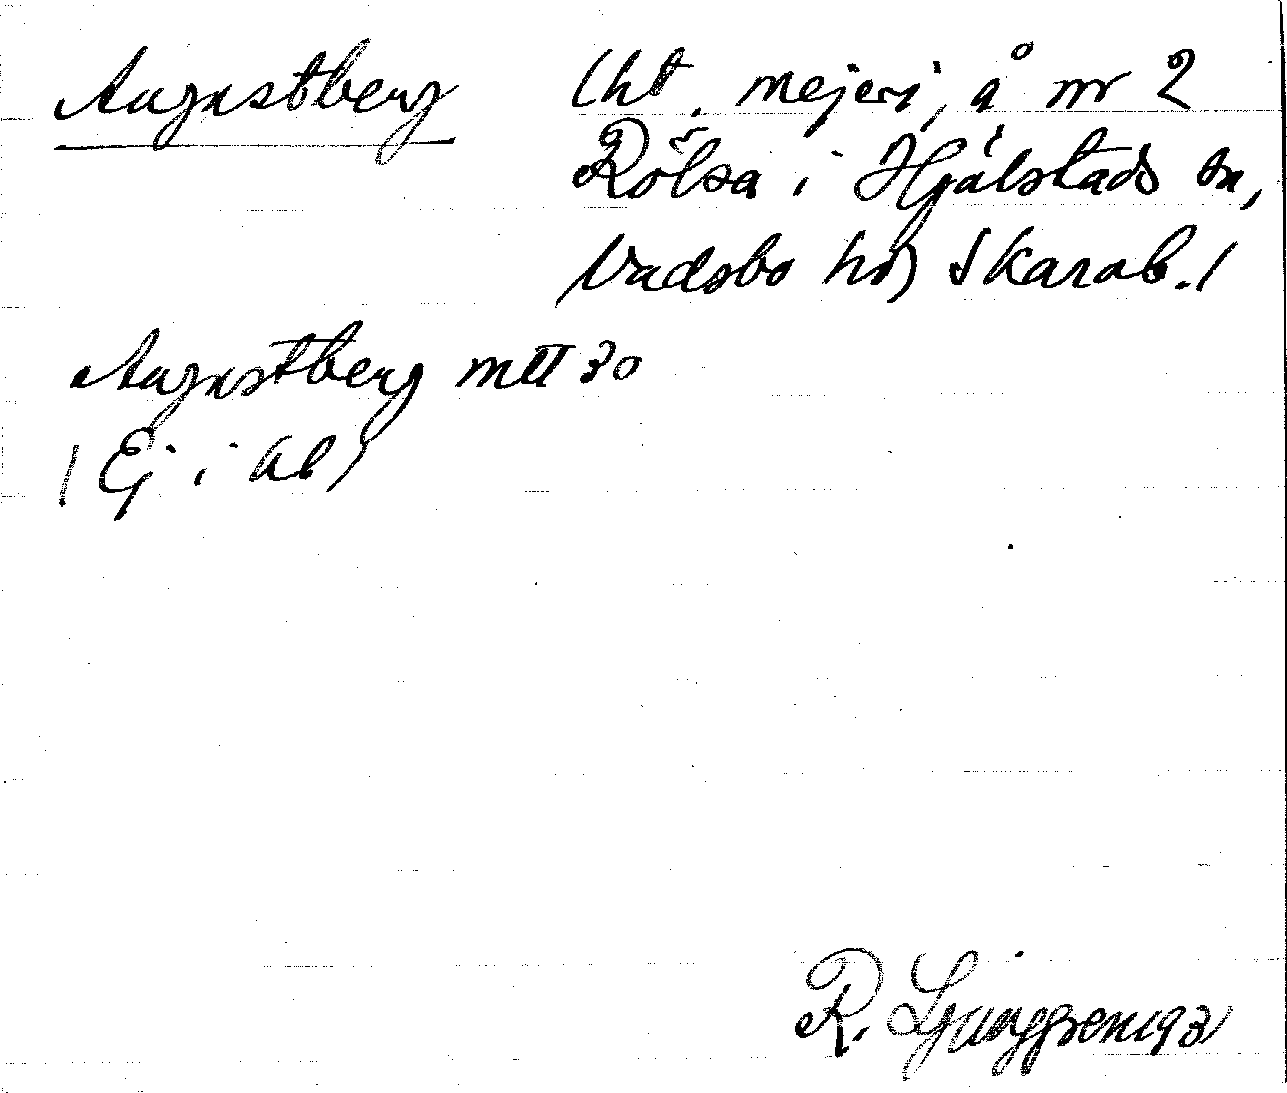 Augustberg (ht. mejeri, å nr 2
Rölsa i Hjälstads sn,
Vadsbo hd, Skarab.)
Augustberg mtl 30
(Ej i ab)
R. Ljunggren 1931